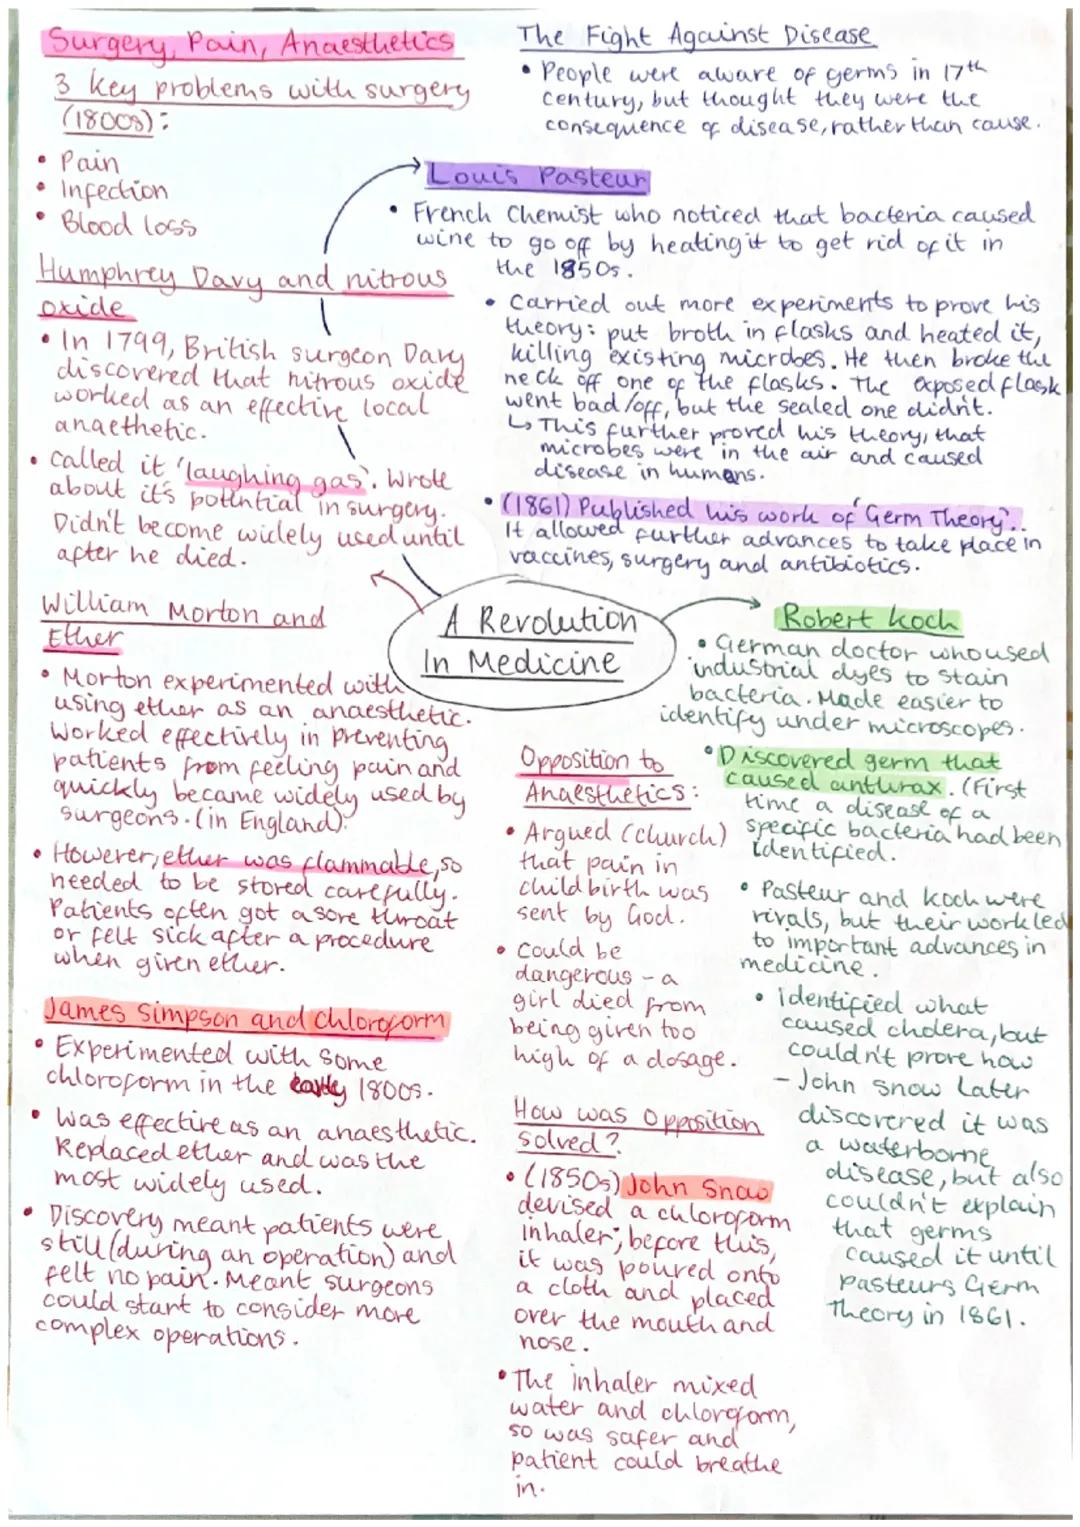 Surgery, Pain, Anaesthetics
3 key problems with surgery
(1800s):
• Pain
• Infection
• Blood loss
Humphrey Davy and nitrous
oxide
• In 1799, British surgeon Davy
discovered that nitrous oxide
worked as an effective local
anaethetic.
• Called it 'laughing gas'. Wrote
about it's potential in surgery.
Didn't become widely used until
after he died.
William Morton and
Ether
• Morton experimented with
using ether as an anaesthetic.
Worked effectively in preventing
patients from feeling pain and
quickly became widely used by
surgeons. (in England).
• However, ether was flammable, so
needed to be stored carefully.
Patients often got a sore throat
or felt sick after a procedure
when given ether.
James Simpson and Chloroform
• Experimented with some
chloroform in the early 1800s.
• Was effective as an anaesthetic.
Replaced ether and was the
most widely used.
• Discovery meant patients were
still (during an operation) and
felt no pain. Meant surgeons
could start to consider more
complex operations.
The Fight Against Disease
• People were aware of germs in 17th
century, but thought they were the
consequence of disease, rather than cause.
Louis Pasteur
• French Chemist who noticed that bacteria caused
wine to go off by heating it to get rid of it in
the 1850s.
• Carried out more experiments to prove his
theory: put broth in flasks and heated it,
killing existing microbes. He then broke the
neck off one of the flasks. The exposed flask
went bad/off, but the sealed one didn't.
↳ This further proved his theory, that
microbes were in the air and caused
disease in humans.
• (1861) Published his work of 'Germ Theory'.
It allowed further advances to take place in
vaccines, surgery and antibiotics.
A Revolution
In Medicine
Robert Koch
• German doctor who used
industrial dyes to stain
bacteria. Made easier to
identify under microscopes.
• Discovered germ that
caused anthrax. (First
time a disease of a
specific bacteria had been
identified.
• Pasteur and Koch were
rivals, but their work led
to important advances in
medicine.
• identified what
caused cholera, but
couldn't prove how
- John Snow Later
discovered it was
a waterborne
disease, but also
couldn't explain
that germs
caused it until
Pasteurs Germ
Theory in 1861.
Opposition to
Anaesthetics:
• Argued (church)
that pain in
childbirth was
sent by God.
• Could be
dangerous - a
girl died from
being given too
high of a dosage.
How was Opposition
solved?
• (1850s) John Snow
devised a chloroform
inhaler; before this,
it was poured onto
a cloth and placed
over the mouth and
nose.
• The inhaler mixed
water and chloroform,
so was safer and
patient could breathe
in.